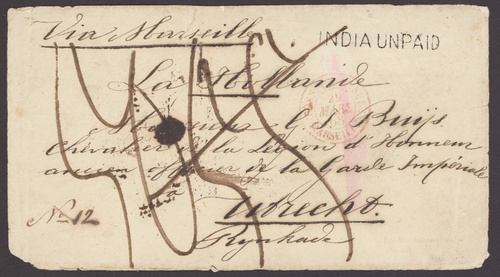 Via Marseille
INDIA UNPAID
La Hollande
Buijs
Chevalier de la Légion d'Honneur
ancien officier de la Garde Impériale
à
Utrecht.
Rynkade
No 12
MARS
MARSEILLE